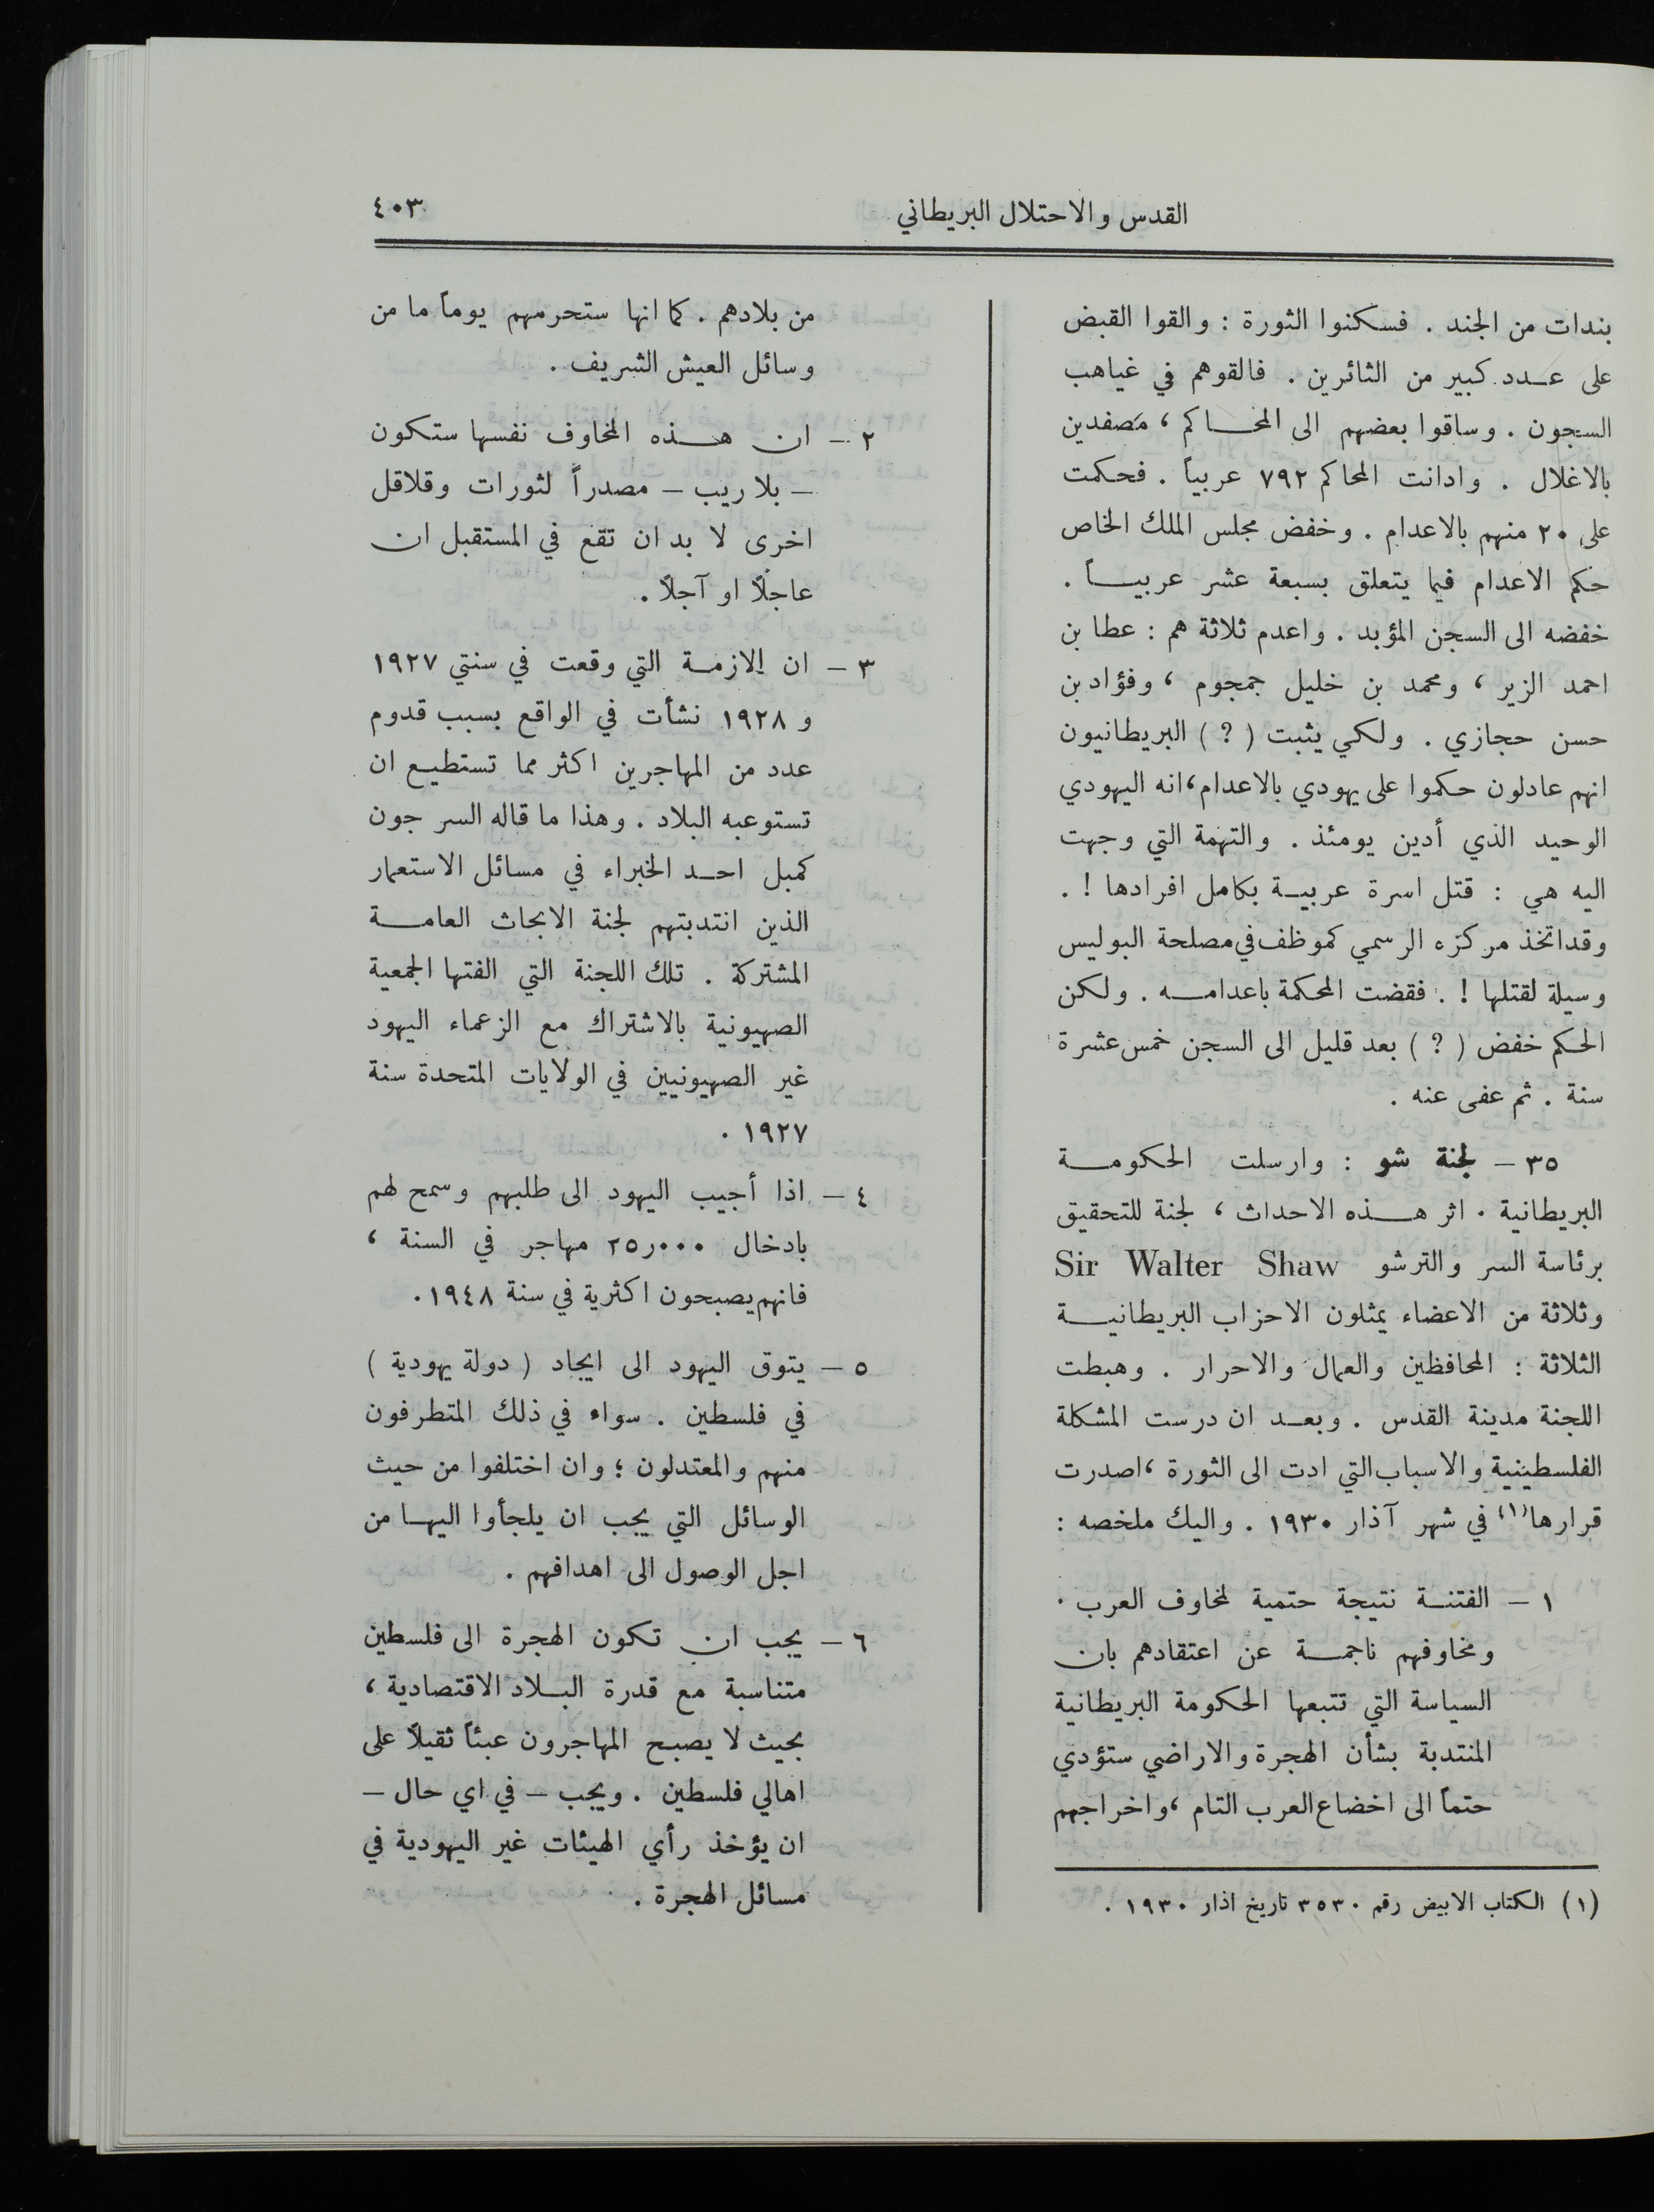 القدس والاحتلال البريطاني
٤٠٣
بندات من الجند . فسكنوا الثورة : والقوا القبض
على عدد كبير من الثائرين . فالقوهم في غياهب
السجون . وساقوا بعضهم الى المحاكم ، مصفدين
بالاغلال . وادانت المحاكم ٧٩٢ عربياً . فحكمت
على ٢٠ منهم بالاعدام . وخفض مجلس الملك الخاص
حكم الاعدام فيما يتعلق بسبعة عشر عربياً .
خفضه الى السجن المؤبد . واعدم ثلاثة هم : عطا بن
احمد الزير ، ومحمد بن خليل جمجوم ، وفؤاد بن
حسن حجازي . ولكي يثبت ( ? ) البريطانيون
انهم عادلون حكموا على يهودي بالاعدام ، انه اليهودي
الوحيد الذي أدين يومئذ . والتهمة التي وجهت
اليه هي : قتل اسرة عربية بكامل افرادها ! .
وقد اتخذ مركزه الرسمي كموظف في مصلحة البوليس
وسيلة لقتلها ! . فقضت المحكمة باعدامه . ولكن
الحكم خفض ( ? ) بعد قليل الى السجن خمس عشرة
سنة . ثم عفى عنه .
٣٥ – لجنة شو : وارسلت الحكومة
البريطانية . اثر هذه الاحداث ، لجنة للتحقيق
برئاسة السر والتر شو Sir Walter Shaw
وثلاثة من الاعضاء يمثلون الاحزاب البريطانية
الثلاثة : المحافظين والعمال والاحرار . وهبطت
اللجنة مدينة القدس . وبعد ان درست المشكلة
الفلسطينية والاسباب التي ادت الى الثورة ، اصدرت
قرارها (١) في شهر آذار ١٩٣٠ . واليك ملخصه :
١ – الفتنة نتيجة حتمية لمخاوف العرب .
ومخاوفهم ناجمة عن اعتقادهم بان
السياسة التي تتبعها الحكومة البريطانية
المنتدبة بشأن الهجرة والاراضي ستؤدي
حتماً الى اخضاع العرب التام ، واخراجهم
(١) الكتاب الابيض رقم ٣٥٣٠ تاريخ اذار ١٩٣٠ .
من بلادهم . كما انها ستحرمهم يوماً ما من
وسائل العيش الشريف .
٢ – ان هذه المخاوف نفسها ستكون
– بلا ريب – مصدراً لثورات وقلاقل
اخرى لا بد ان تقع في المستقبل ان
عاجلاً او آجلاً .
٣ – ان الازمة التي وقعت في سنتي ١٩٢٧
و ١٩٢٨ نشأت في الواقع بسبب قدوم
عدد من المهاجرين اكثر مما تستطيع ان
تستوعبه البلاد . وهذا ما قاله السر جون
كمبل احد الخبراء في مسائل الاستعمار
الذين انتدبتهم لجنة الابحاث العامة
المشتركة . تلك اللجنة التي الفتها الجمعية
الصهيونية بالاشتراك مع الزعماء اليهود
غير الصهيونيين في الولايات المتحدة سنة
١٩٢٧ .
٤ – اذا أجيب اليهود الى طلبهم وسمح لهم
بادخال ٢٥ر٠٠٠ مهاجر في السنة ،
فانهم يصبحون اكثرية في سنة ١٩٤٨ .
٥ – يتوق اليهود الى ايجاد ( دولة يهودية )
في فلسطين . سواء في ذلك المتطرفون
منهم والمعتدلون ؛ وان اختلفوا من حيث
الوسائل التي يجب ان يلجأوا اليها من
اجل الوصول الى اهدافهم .
٦ – يجب ان تكون الهجرة الى فلسطين
متناسبة مع قدرة البلاد الاقتصادية ،
بحيث لا يصبح المهاجرون عبئاً ثقيلاً على
اهالي فلسطين . ويجب – في اي حال –
ان يؤخذ رأي الهيئات غير اليهودية في
مسائل الهجرة .